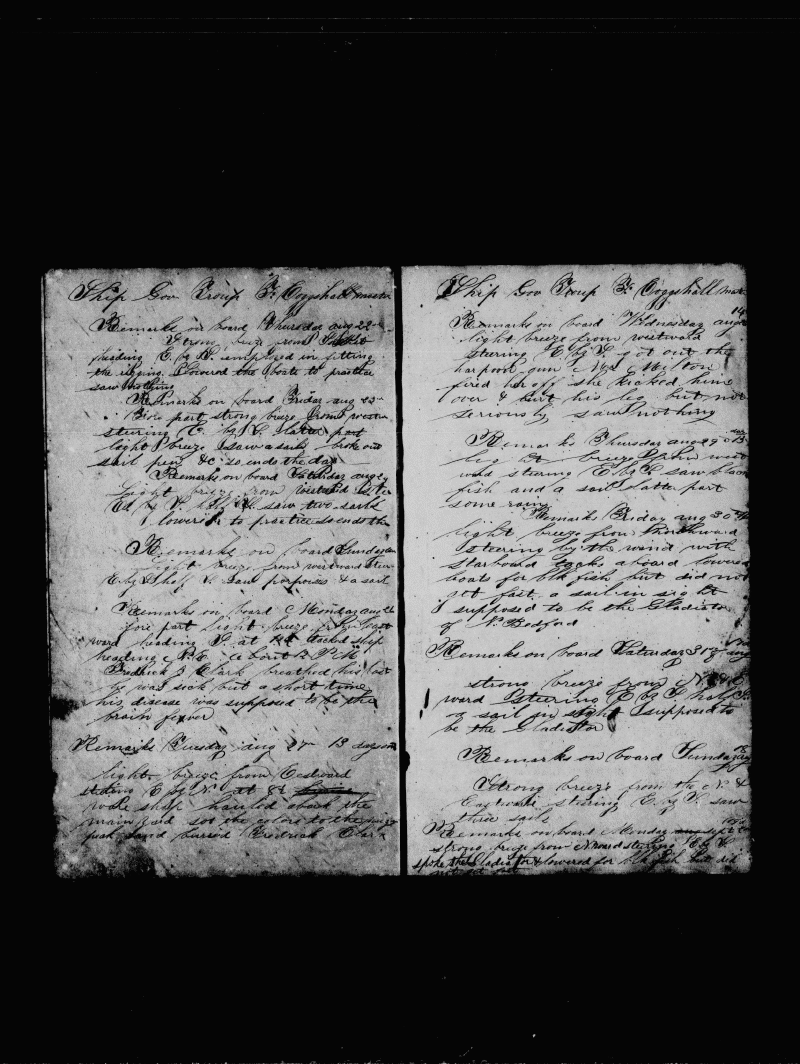 Ship Gov Troup F. Coggshall master
Remarks on board Thursday aug 22
Strong breeze from S
heading E. by N. employed in fitting
the rigging. Lowered the boats to practice
saw nothing
Remarks on board Friday aug 23
fore part strong breeze from western
steering E by S latter part
light breeze saw a sail broke out
sail pen &c so ends the day
Remarks on board Saturday aug 24
Light breeze from westward
saw two sails
lowered to practice so ends the
Remarks on board Sunday
light breeze from westward steer
E by S half S. saw porpoises & a sail
Remarks on board Monday aug 26
fore part light breeze from east
ward heading S. at tacked ship
heading N.E. about 2 P.M.
Fredrick B Clark breathed his last
he was sick but a short time
his disease was supposed to be the
brain fever
Remarks Tuesday aug 27 13 days out
light breeze from Eastward
steering E by N. at 8
wore ship hauled aback the
main yard set the colors
peak and burried Fredrick Clark
Ship Gov Troup F. Coggshall mast
14
Remarks on board Wednesday aug
light breeze from westward
steering E by S got out the
harpoon gun Mr Milton
fired her off she kicked him
over & hurt his leg but not
seriously saw nothing
Remarks Thursday aug 29 15
breeze from west
ward steering E. by S saw black
fish and a sail latter part
some rain
Remarks Friday aug 30
light breeze from Northward
steering by the wind with
starboard tacks aboard lowered
boats for blk fish but did not
get fast a sail in sight
supposed to be the Gladiator
of N. Bedford
Remarks on board Saturday 31 of aug
strong breeze from N
ward steering E by S half S.
a sail in sight supposed to
be the Gladiator
Remarks on board Sunday 18
Strong breeze from the N &
Eastward steering E. by S. saw
three sails
Remarks on board Monday sept 2
strong breeze from N ward steering E by S
spoke the Gladiator & lowered for blk fish but did
not get any